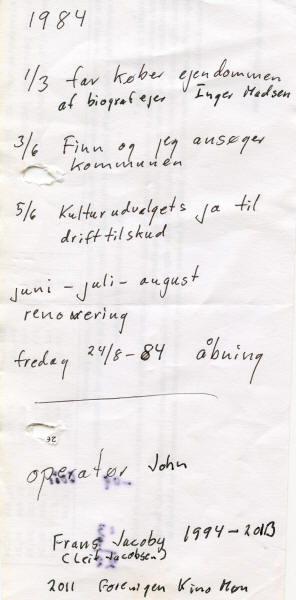 1984
1/3 far køber ejendommen
af biografejer Inger Madsen
3/6 Finn og jeg ansøger
kommunen
5/6 Kulturudvalgets ja til
drifttilskud
juni - juli - august
renovering
fredag 24/8-84 åbning
26
operatør John
Frans Jacoby 1994-2013
(Leif Jacobsen)
2011 Foreningen Kino Møn